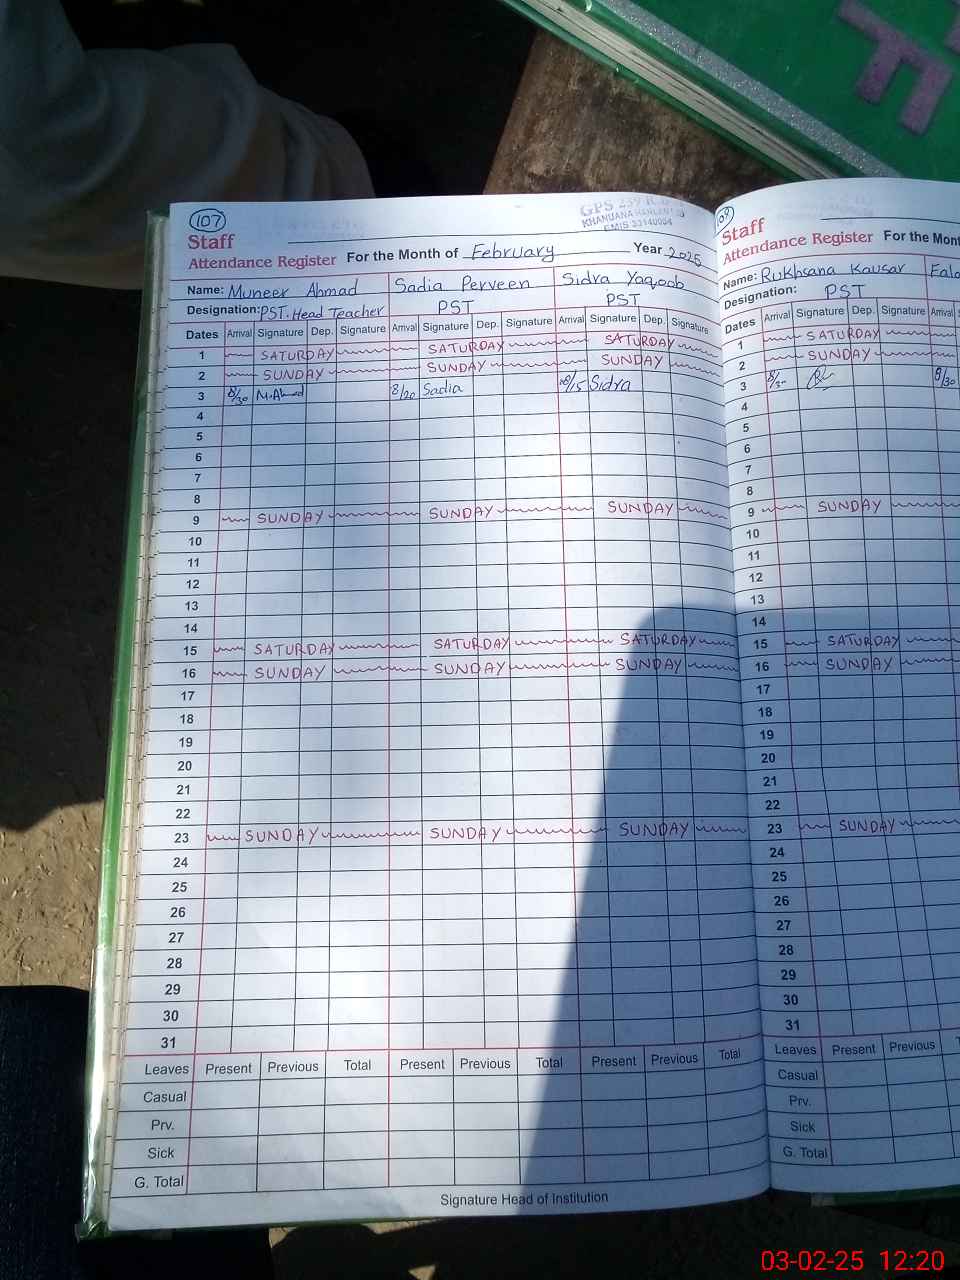 107
GPS 239 R.B
KHANUANA
EMIS 33140004
Staff
Attendance Register For the Month of February Year 2025
Name: Muneer Ahmad Sadia Perveen Sidra Yaqoob
Designation: PST. Head Teacher PST PST
Dates Arrival Signature Dep. Signature Arrival Signature Dep. Signature Arrival Signature Dep. Signature
1 SATURDAY SATURDAY SATURDAY
2 SUNDAY SUNDAY SUNDAY
3 8/30 M.Ahmad 8/20 Sadia 8/15 Sidra
4
5
6
7
8
9 SUNDAY SUNDAY SUNDAY
10
11
12
13
14
15 SATURDAY SATURDAY SATURDAY
16 SUNDAY SUNDAY SUNDAY
17
18
19
20
21
22
23 SUNDAY SUNDAY SUNDAY
24
25
26
27
28
29
30
31
Leaves Present Previous Total Present Previous Total Present Previous Total
Casual
Prv.
Sick
G. Total
Signature Head of Institution
108
Staff
Attendance Register For the Mont
Name: Rukhsana Kausar
Designation: PST
Dates Arrival Signature Dep. Signature Arrival
1 SATURDAY
2 SUNDAY
3 8/30
4
5
6
7
8
9 SUNDAY
10
11
12
13
14
15 SATURDAY
16 SUNDAY
17
18
19
20
21
22
23 SUNDAY
24
25
26
27
28
29
30
31
Leaves Present Previous
Casual
Prv.
Sick
G. Total
03-02-25 12:20